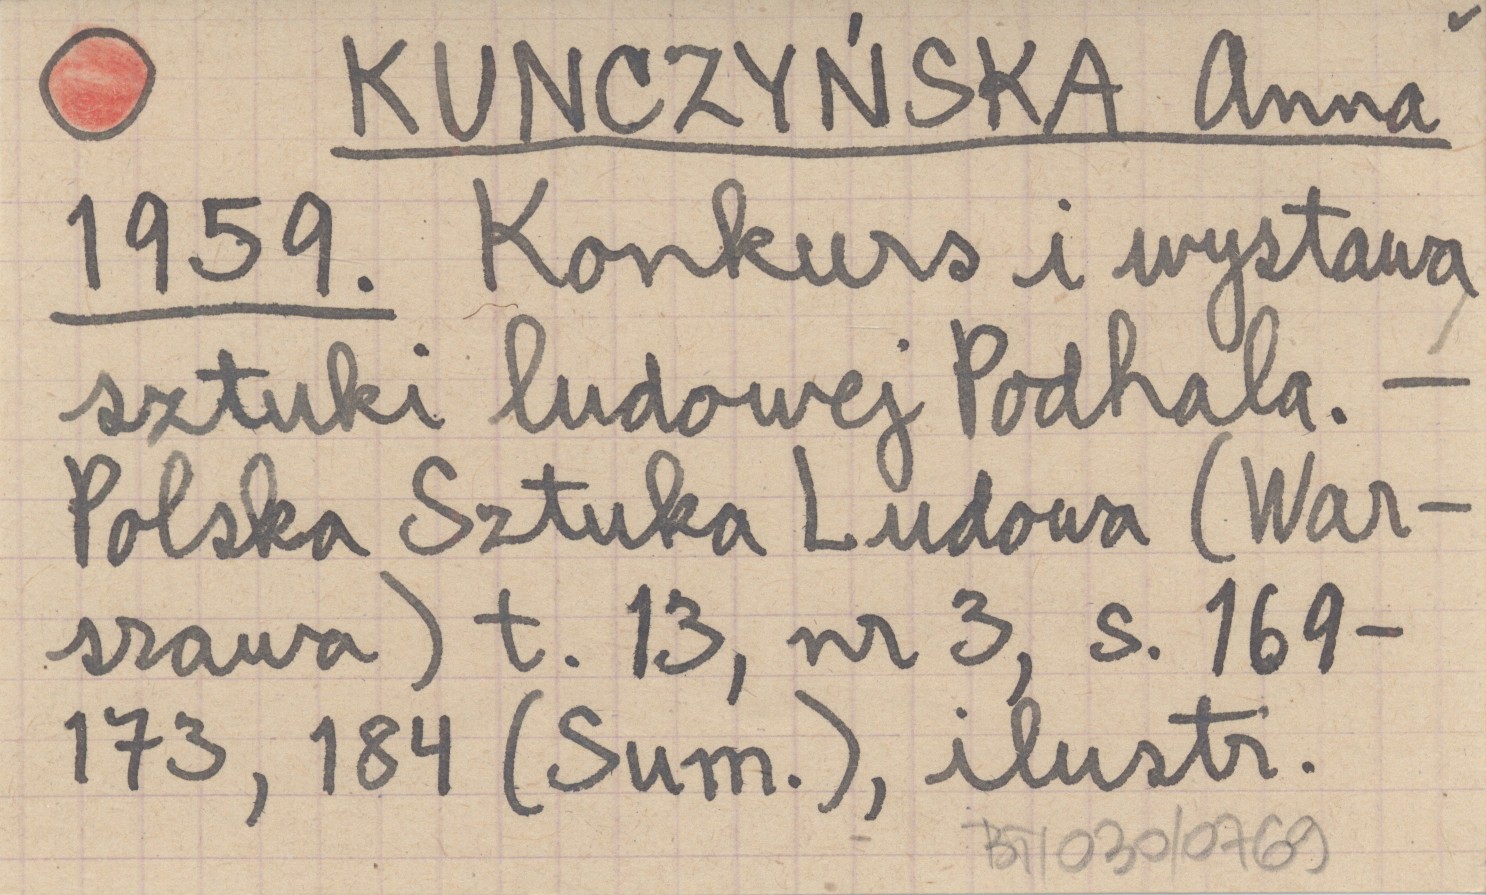 KUNCZYŃSKA Anna
1959. Konkurs i wystawa
sztuki ludowej Podhala. —
Polska Sztuka Ludowa (War-
szawa) t. 13, nr 3, s. 169-
173, 184 (Sum.), ilustr.
BT/030/0769